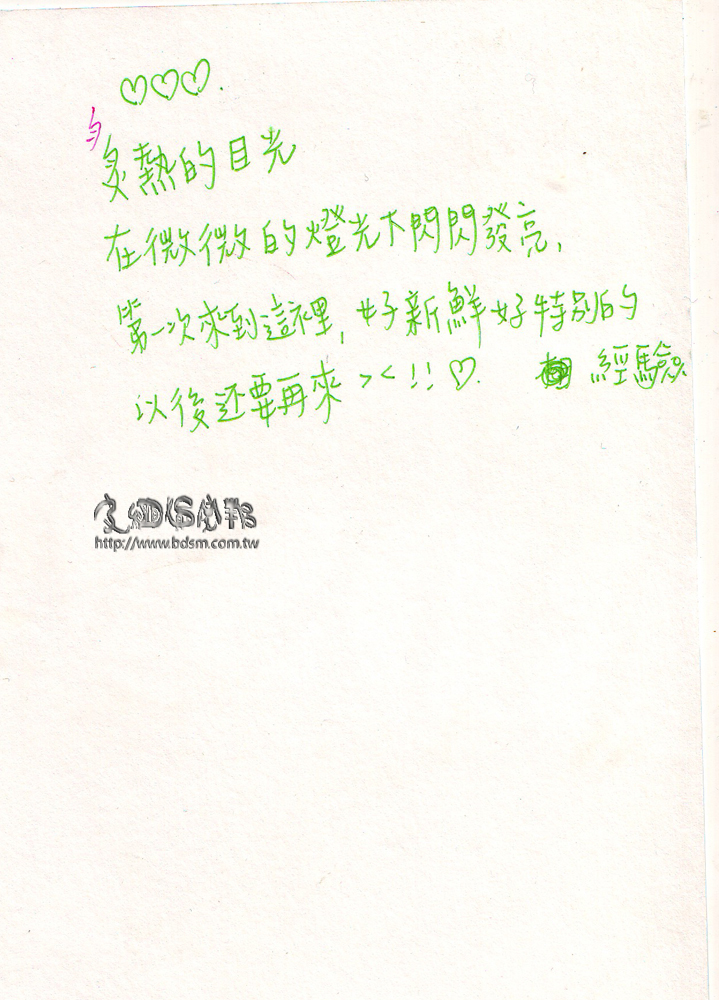 ♡♡♡.
炙熱的目光
在微微的燈光下閃閃發亮,
第一次來到這裡,好新鮮好特別的
經驗。
以後还要再來><!!♡.
http://www.bdsm.com.tw